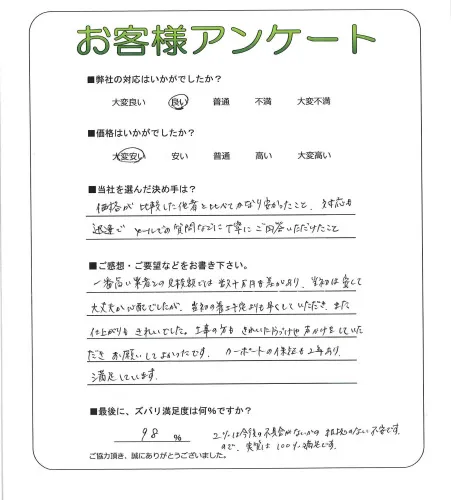 お客様アンケート
■弊社の対応はいかがでしたか?
大変良い 良い 普通 不満 大変不満
■価格はいかがでしたか?
大変安い 安い 普通 高い 大変高い
■当社を選んだ決め手は?
価格が比較した他者と比べてかなり安かったこと、対応も
迅速で メールでの質問などに丁寧にご回答いただけたこと
■ご感想・ご要望などをお書き下さい。
一番高い業者との見積額では 数十万円も差があり、当初は安して
大丈夫か心配でしたが、当初の着工予定よりも早くしていただき、また
仕上がりも きれいでした。工事の方も きれいに片づけや 声かけをしていた
だき お願いしてよかったです。 カーポートの保証も2年あり、
満足しています。
■最後に、ズバリ満足度は何%ですか?
98 %
2%は今後の不具合がないかの 根拠のない不安です。
ので、実質は 100%満足です。
ご協力頂き、誠にありがとうございました。